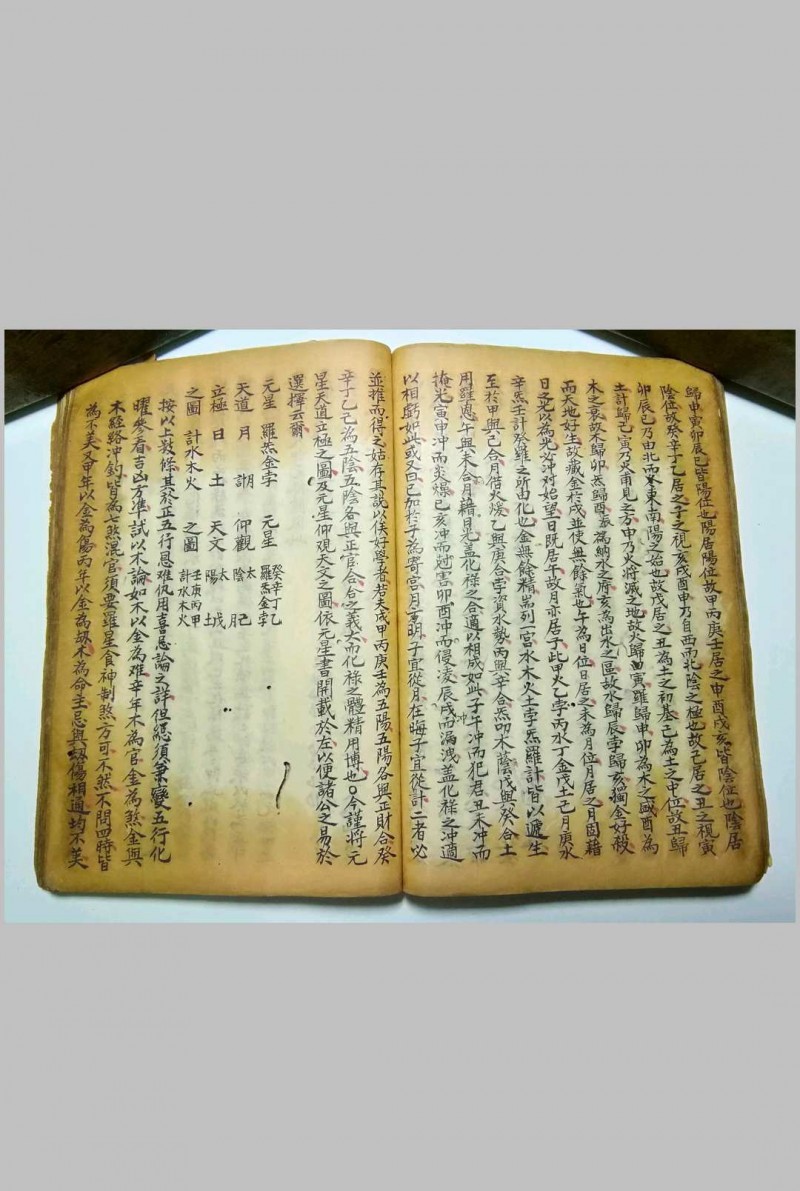 歸申寅卯辰巳皆陽位也陽居陽位故甲丙庚壬居之申酉戌亥皆陰位也陰居
陰位故癸辛丁乙居之子之視亥戌酉申乃自西而北陰之極也故己居之丑之視寅
卯辰巳乃由北而東東南陽之始也故戊居之丑為土之初基己為土之中位故丑歸
土計歸己寅乃火甫見之方申乃火將滅之地故火歸寅羅歸申卯為木之盛酉為
木之衰故木歸卯炁歸酉辰為納水之府亥為出水之區故水歸辰孛歸亥獨金好殺
而天地好生故藏金於戌並使無餘氣也午為日位日居之未為月位月居之月因藉
日之光以為光必冲對始望日既居午故月亦居子此甲火乙孛丙水丁金戊土己月庚水
辛炁壬計癸羅之所由化也金無餘精耑列一宮水木火土孛炁羅計皆以遞生
至於甲與己合月借火煖乙與庚合孛資水勢丙與辛合炁叨木蔭戊與癸合土
用羅恩午與未合月藉日光盖化祿之合適以相成如此子午冲而犯君丑未冲而
掩光寅申冲而炎燥巳亥冲而尅害卯酉冲而侵凌辰戌而漏洩盖化祿之冲適
以相虧如此或又曰己加於子為寄宮月重明子宜從月在晦子宜從計二者必
並推而得之姑存其說以俟好學者若夫戍甲丙庚壬為五陽五陽各與正財合癸
辛丁乙己為五陰五陰各與正官合合之義大而化祿之體精用博也今謹將元
星天道立極之圖及元星仰觀天文之圖依元星書開載於左以便諸公之易於
選擇云爾
元星 羅炁金孛 元星 羅炁金孛 癸辛丁乙
天道 月 仰觀 太陰
立極 日 土 天文 太陽 土
之圖 計水木火 之圖 計水木火 壬庚丙甲
按以上数條其於正五行恩难仇用喜忌論之詳但緫須兼變五行化
曜參看吉凶方準試以木論如木以金為难辛年木為官金為煞金與
木經絡冲釣皆為七煞混官須要羅星食神制煞方可不然不問四時皆
為不美又甲年以金為傷丙年以金為刼木為命主忌與刼傷相通均不美